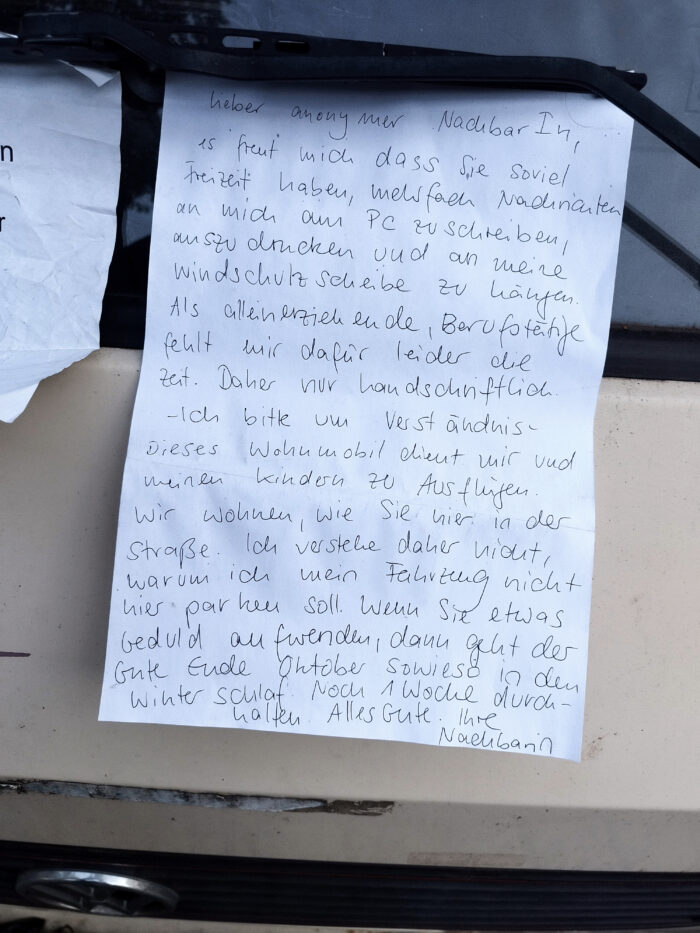 n
r
lieber anonymer NachbarIn,
es freut mich dass Sie soviel
Freizeit haben, mehrfach Nachrichten
an mich am PC zu schreiben,
auszudrucken und an meine
Windschutzscheibe zu hängen.
Als alleinerziehende, Berufstätige
fehlt mir dafür leider die
Zeit. Daher nur handschriftlich.
-Ich bitte um Verständnis-
Dieses Wohnmobil dient mir und
meinen Kindern zu Ausflügen.
Wir wohnen, wie Sie hier in der
Straße. Ich verstehe daher nicht,
warum ich mein Fahrzeug nicht
hier parken soll. Wenn Sie etwas
Geduld aufwenden, dann geht der
Gute Ende Oktober sowieso in den
Winterschlaf. Noch 1 Woche durch-
halten. Alles Gute. Ihre
Nachbarin